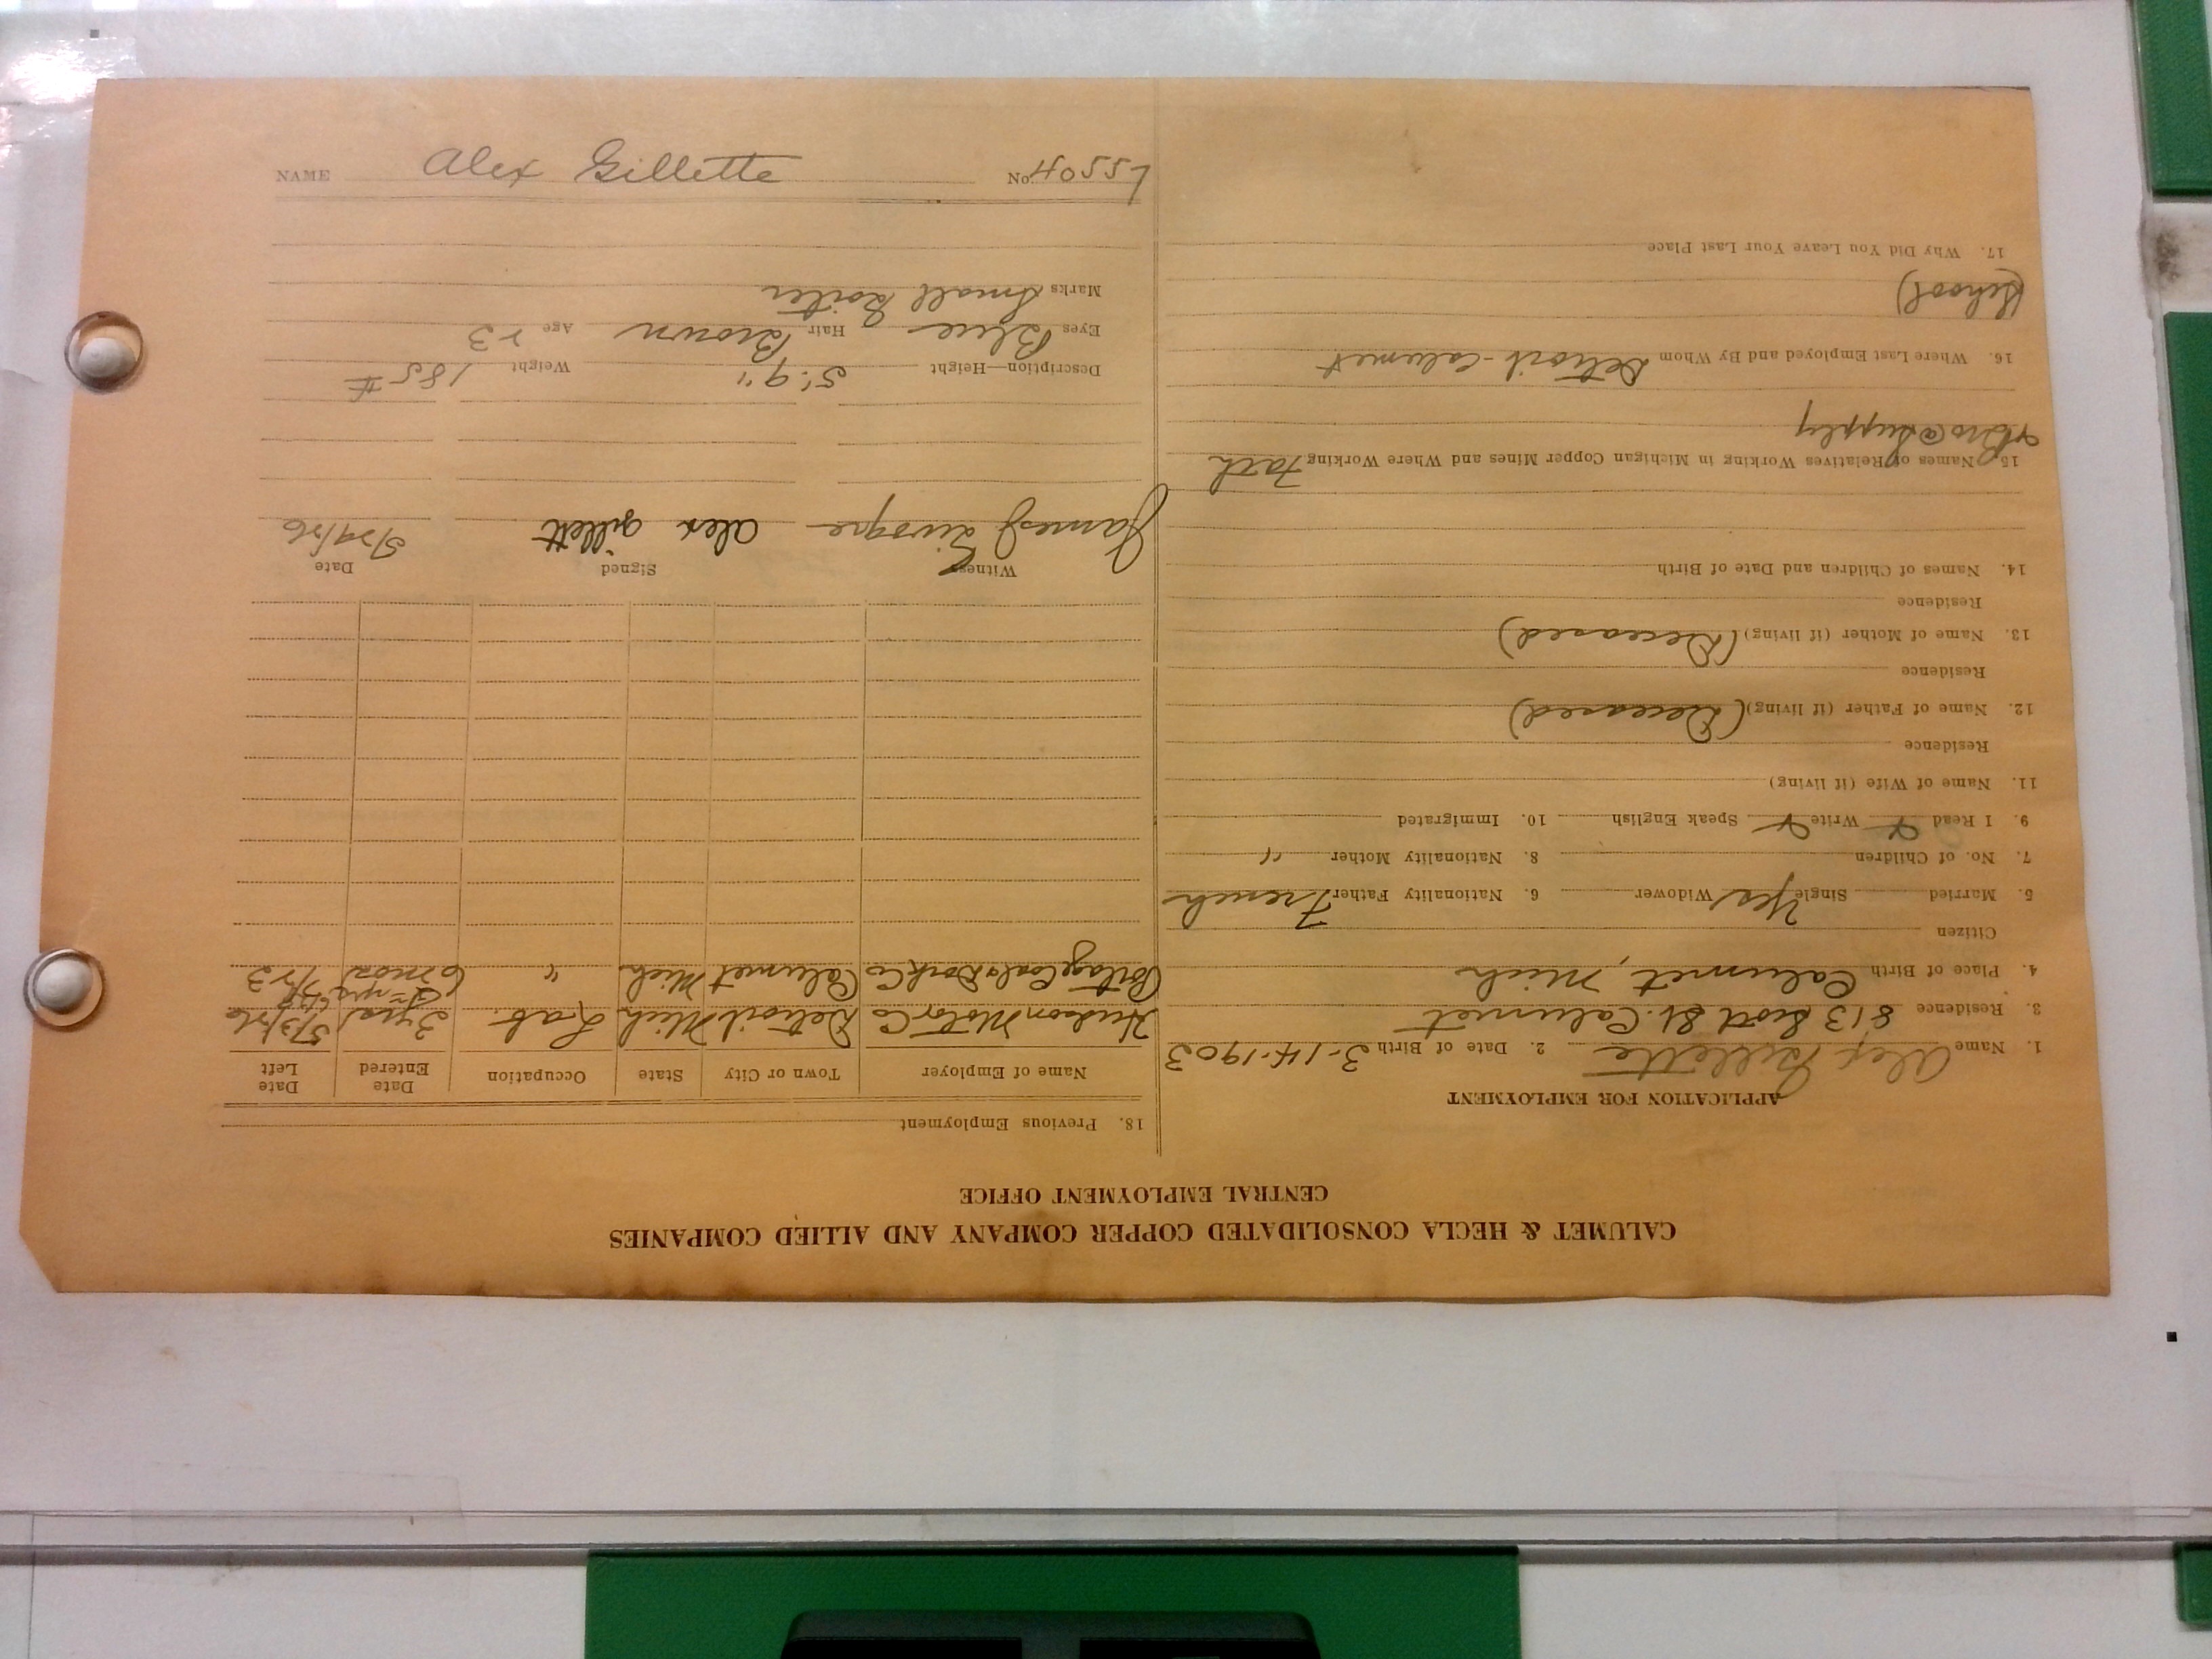 CALUMET & HECLA CONSOLIDATED COPPER COMPANY AND ALLIED COMPANIES
CENTRAL EMPLOYMENT OFFICE
APPLICATION FOR EMPLOYMENT
1. Name Alex Gillette 2. Date of Birth 3-14-1903
3. Residence 813 Scott St. Calumet
4. Place of Birth Calumet, Mich
Citizen
5. Married Single Yes Widower 6. Nationality Father French
7. No. of Children 8. Nationality Mother "
9. I Read Write Speak English 10. Immigrated
11. Name of Wife (if living)
Residence
12. Name of Father (if living) (Deceased)
Residence
13. Name of Mother (if living) (Deceased)
Residence
14. Names of Children and Date of Birth
15. Names of Relatives Working in Michigan Copper Mines and Where Working
Bro @ Supply
16. Where Last Employed and By Whom Detroit-Calumet
(School)
17. Why Did You Leave Your Last Place
18. Previous Employment
Name of Employer Town or City State Occupation Date Entered Date Left
Hudson Motor Co Detroit Mich Lab. 3 yrs 5/3/26
Portage Coal & Dock Co Calumet Mich " 6 mos 7/23
Witness Signed Date
James Alex Gillett 5/24/26
Description—Height 5'.9" Weight 185#
Eyes Blue Hair Brown Age 23
Marks Small Goiter
NAME Alex Gillette No.